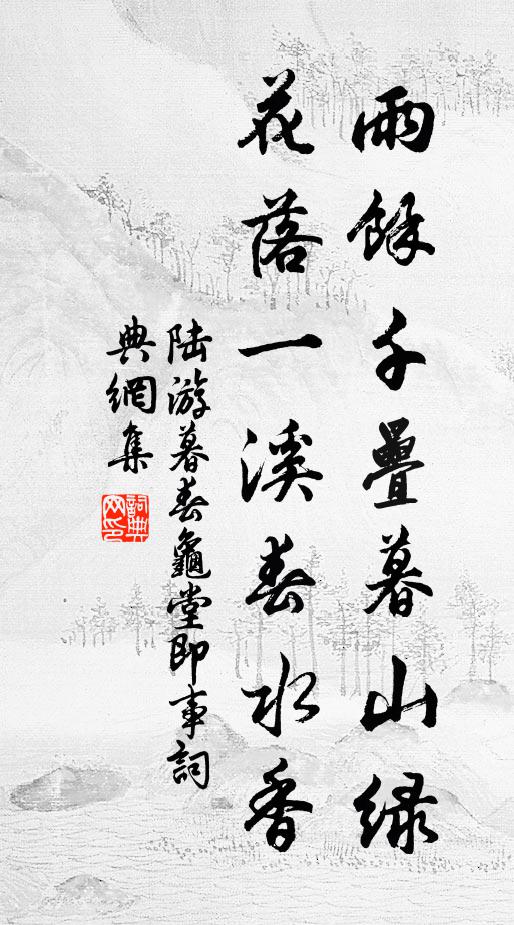 雨餘千疊暮山緑
花落一溪春水香
陆游暮春龜堂即事詞
典網集
詞典
网印